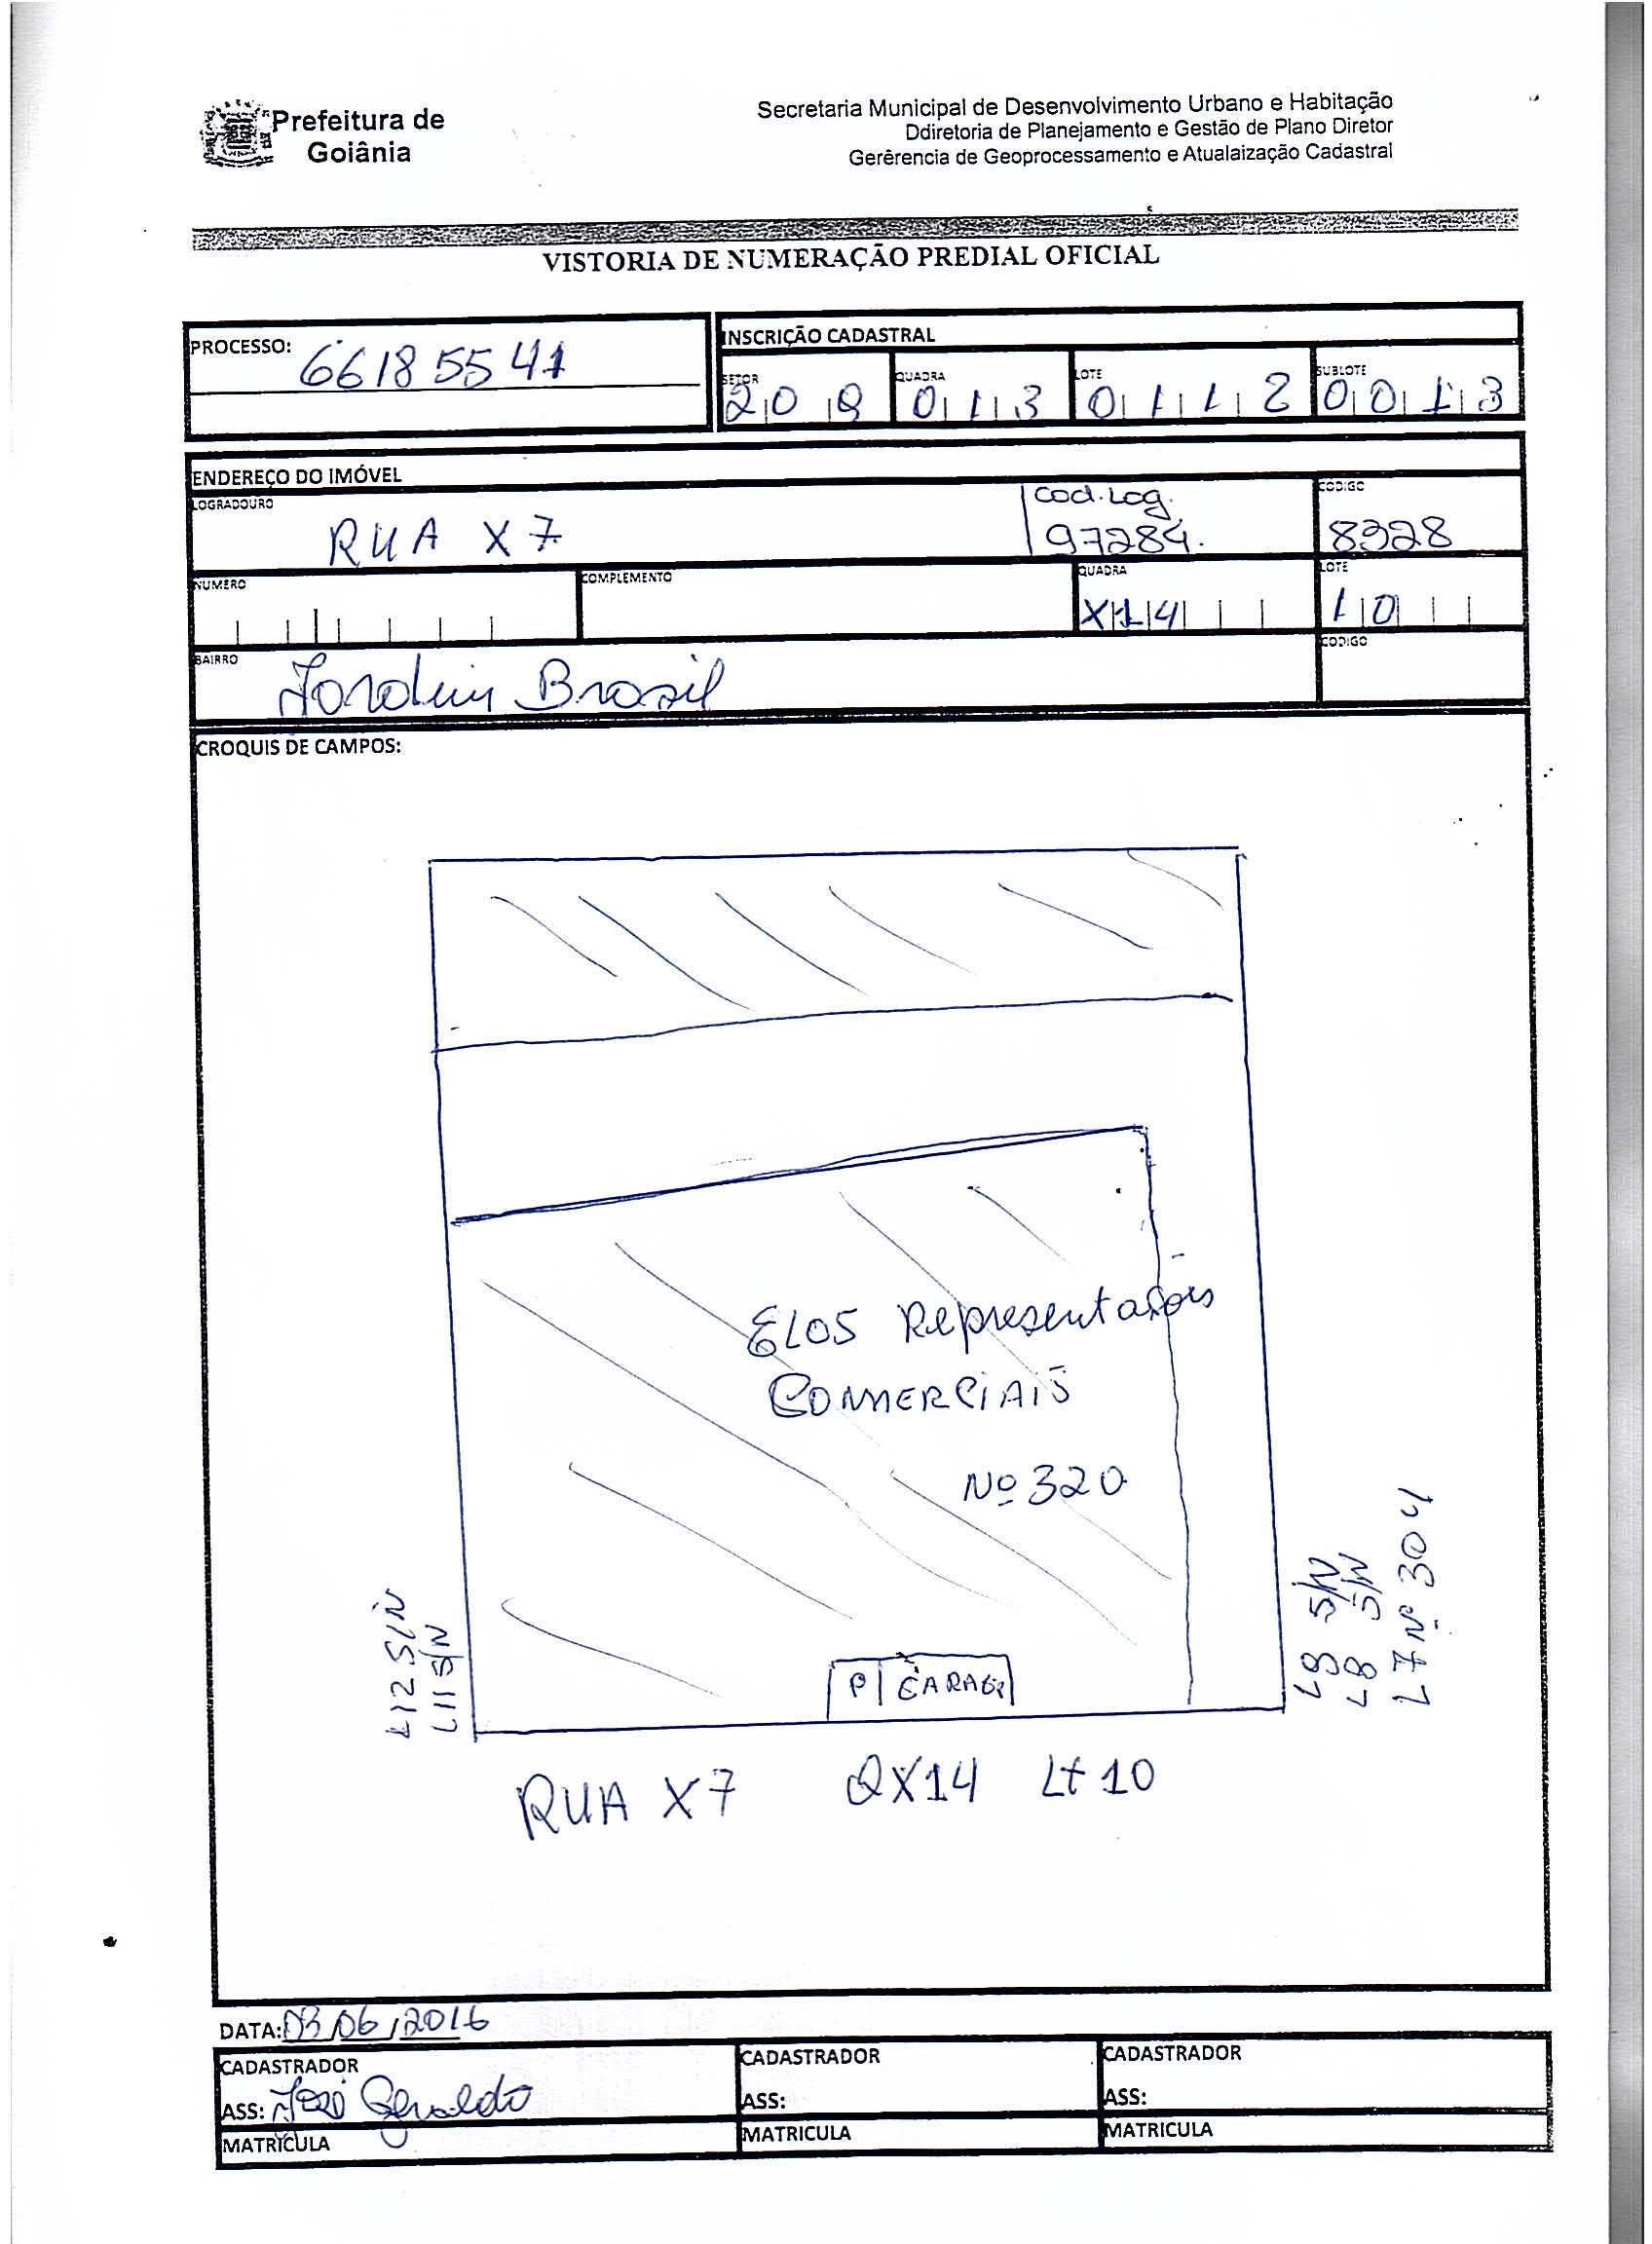 Prefeitura de
Goiânia
Secretaria Municipal de Desenvolvimento Urbano e Habitação
Ddiretoria de Planejamento e Gestão de Plano Diretor
Gerêrencia de Geoprocessamento e Atualaização Cadastral
VISTORIA DE NUMERAÇÃO PREDIAL OFICIAL
PROCESSO: 66185541
INSCRIÇÃO CADASTRAL
SETOR QUADRA LOTE SUBLOTE
013 0112 0013
ENDEREÇO DO IMÓVEL
LOGRADOURO cod.Log. CODIGO
RUA X7 97284. 8328
NUMERO COMPLEMENTO QUADRA LOTE
X14 10
BAIRRO CODIGO
Jardim Brasil
CROQUIS DE CAMPOS:
ELOS Representações
COMERCIAIS
Nº 320
L12 S/N
L11 S/N
L9 S/N
L8 S/N
L7 Nº 304
P GARAGE
RUA X7 QX14 Lt 10
DATA: 03/06/2016
CADASTRADOR CADASTRADOR CADASTRADOR
ASS: José Geraldo ASS: ASS:
MATRÍCULA MATRICULA MATRICULA